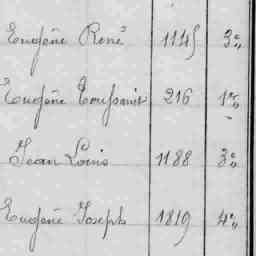 Eugène René 1145 3"
Eugène Toussaint 216 1"
Jean Louis 1188 3"
Eugène Joseph 1819 4"